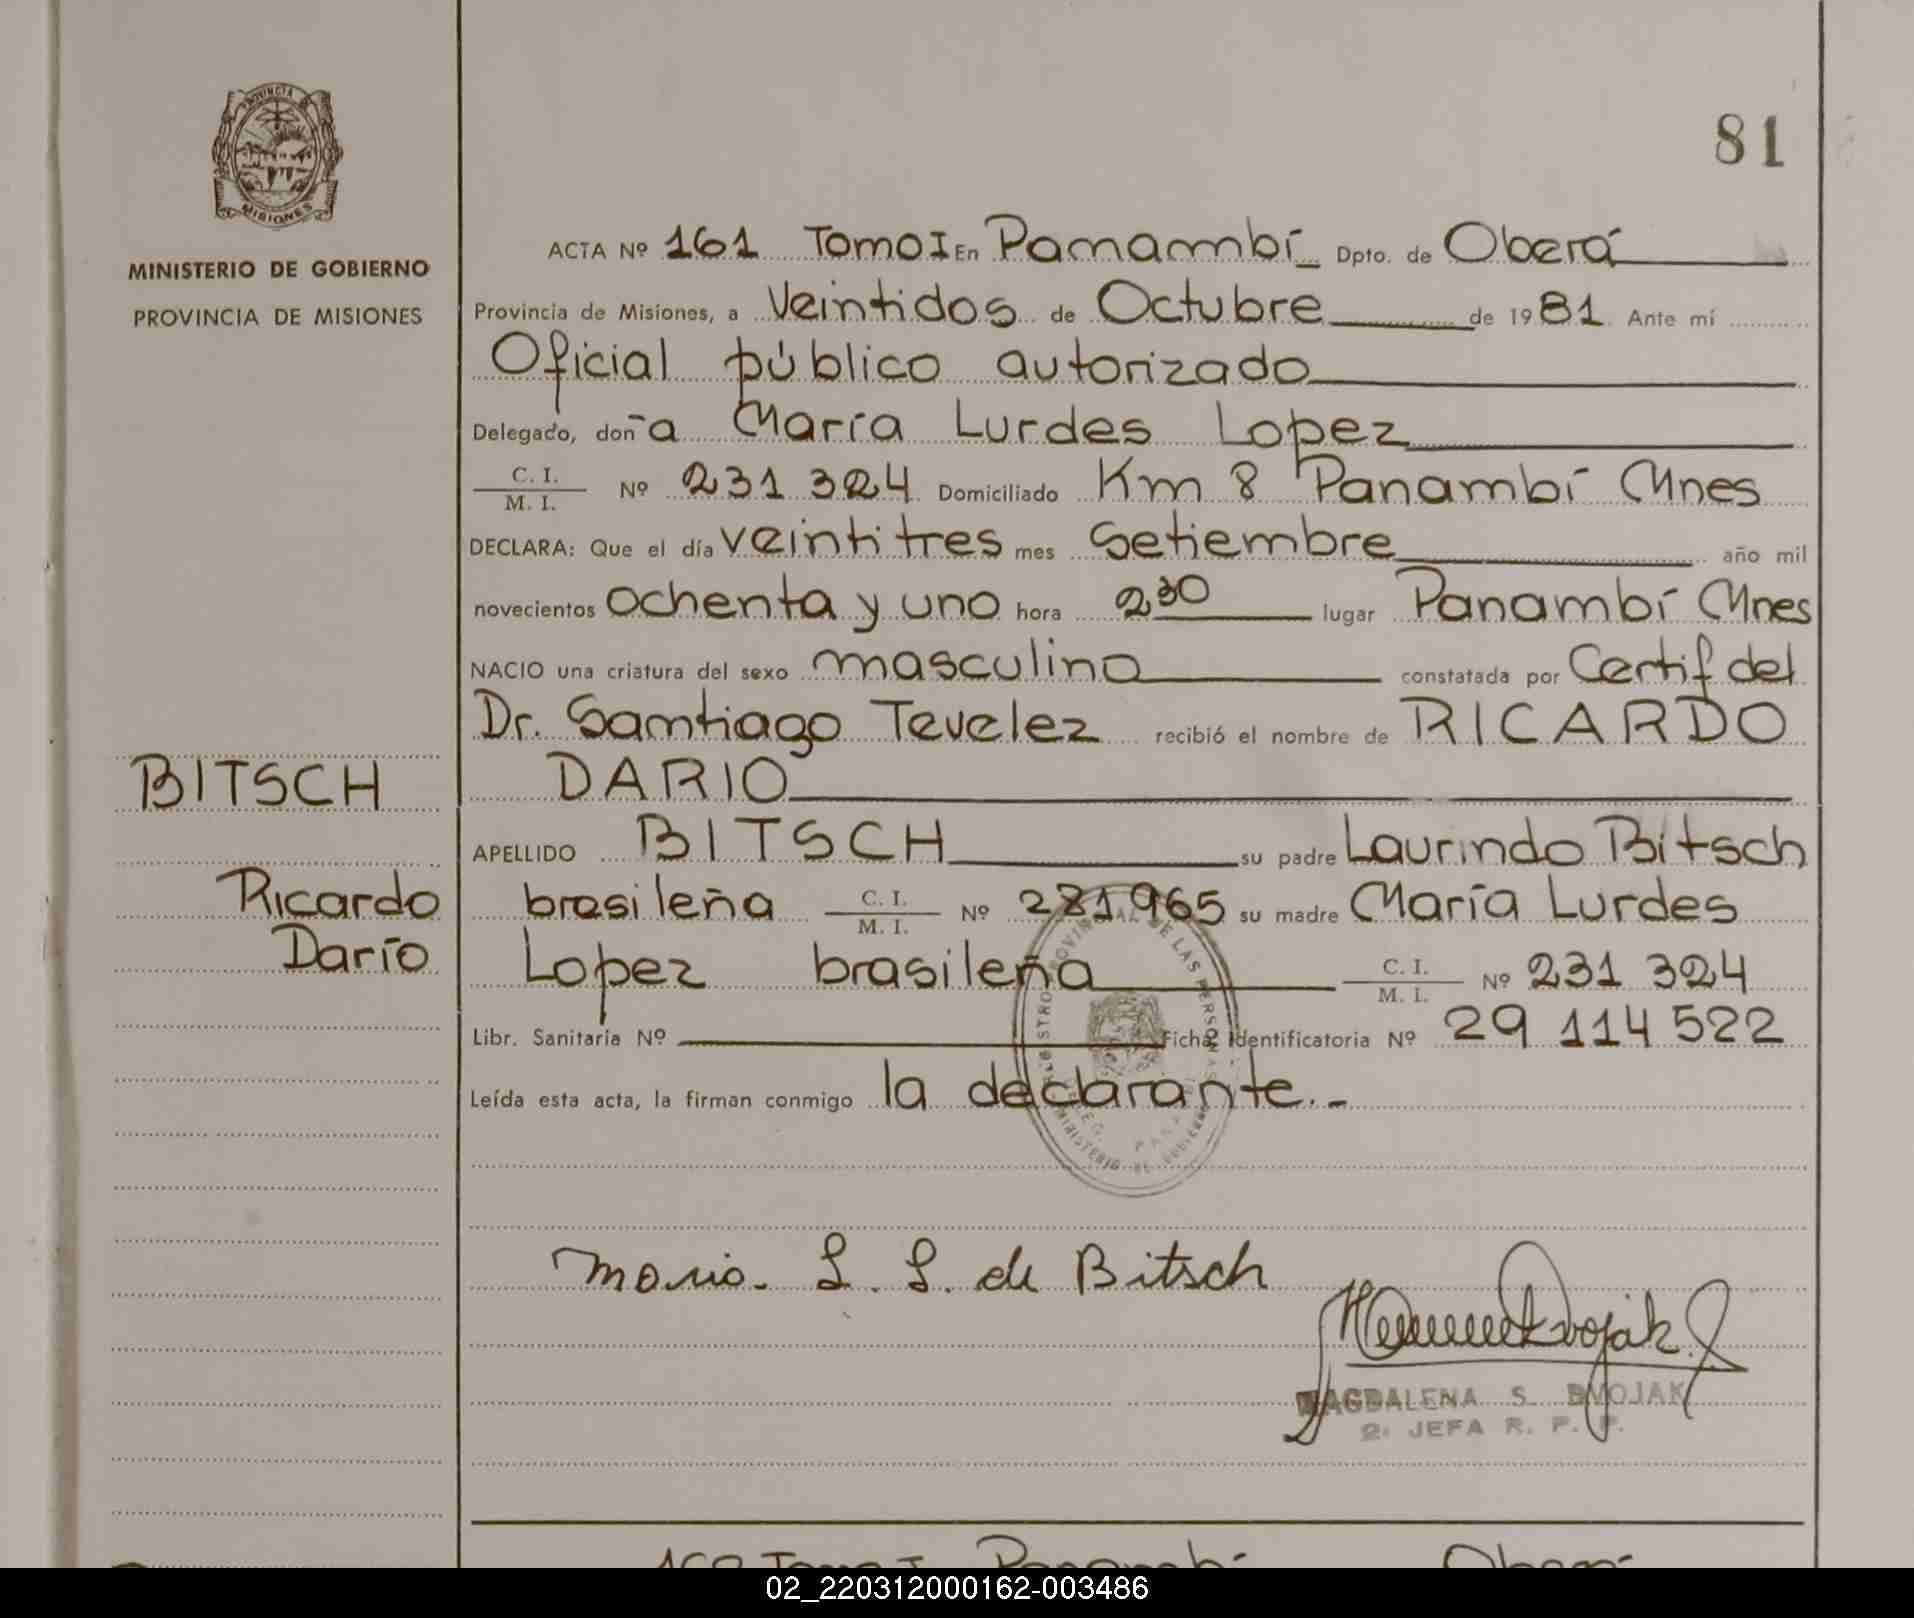 PROVINCIA DE
MISIONES
MINISTERIO DE GOBIERNO
PROVINCIA DE MISIONES
81
ACTA Nº 161 Tomo I En Panambí Dpto. de Oberá
Provincia de Misiones, a Veintidos de Octubre de 1981 Ante mí
Oficial público autorizado
Delegado, doña María Lurdes Lopez
C. I. / M. I. Nº 231 324 Domiciliado Km 8 Panambí Mnes
DECLARA: Que el día veintitres mes Setiembre año mil
novecientos ochenta y uno hora 2³⁰ lugar Panambí Mnes
NACIO una criatura del sexo masculino constatada por Certif del
Dr. Santiago Tevelez recibió el nombre de RICARDO
BITSCH DARIO
APELLIDO BITSCH su padre Laurindo Bitsch
Ricardo brasileña C. I. / M. I. Nº 281965 su madre María Lurdes
Darío Lopez brasileña C. I. / M. I. Nº 231 324
Libr. Sanitaria Nº Ficha Identificatoria Nº 29 114 522
Leída esta acta, la firman conmigo la declarante.-
REGISTRO PROVINCIAL DE LAS PERSONAS
MINISTERIO DE GOBIERNO
Maria L. L. de Bitsch
MAGDALENA S. DVOJAK
2. JEFA R. P. P.
Tomo I Panambí Oberá
02_220312000162-003486